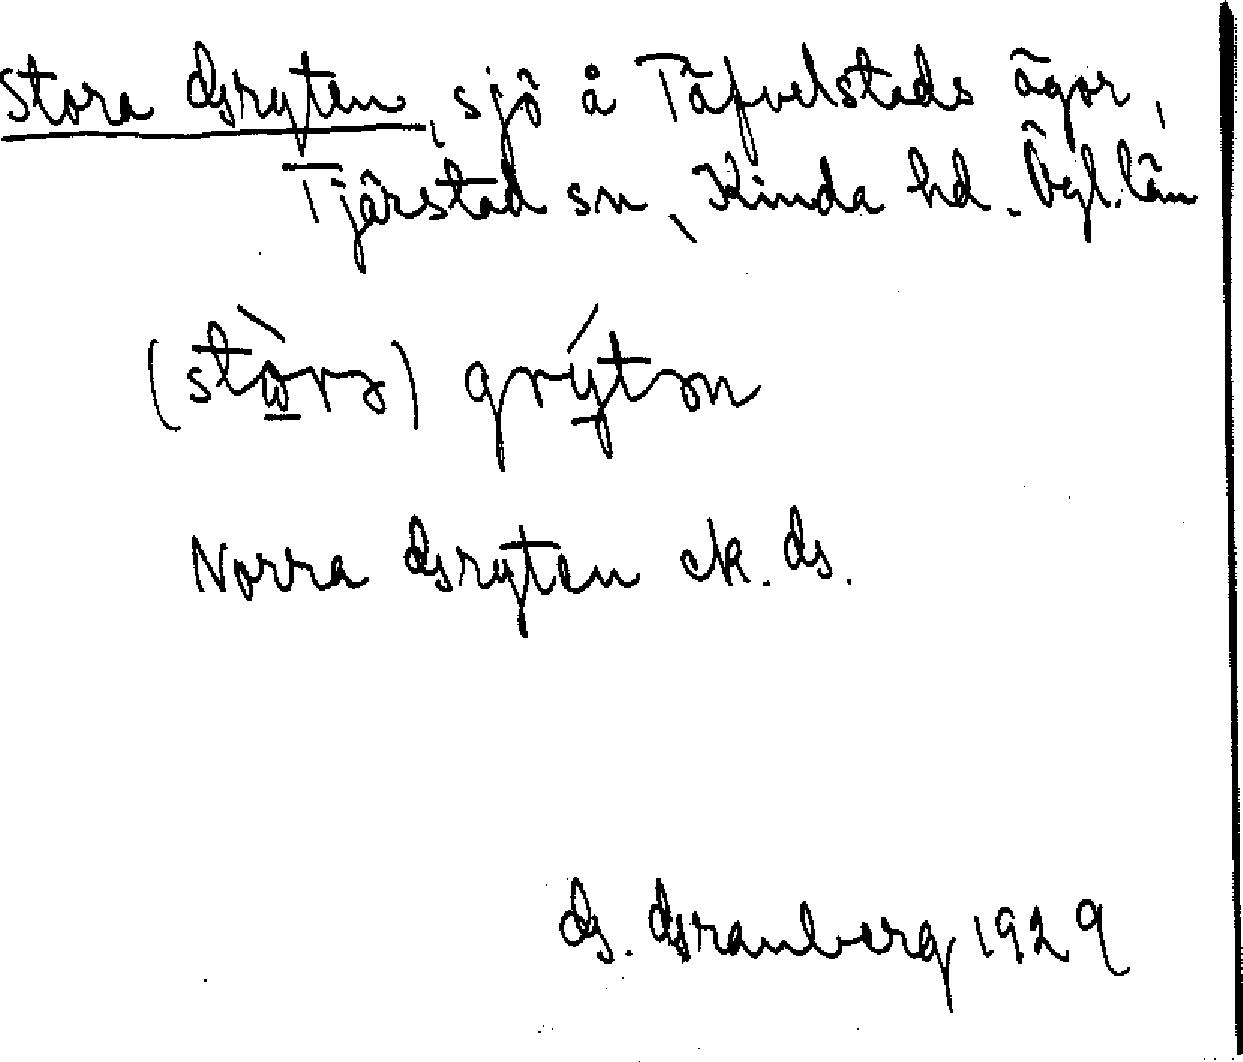 Stora Gryten, sjö å Täfvelstads ägor,
Tjärstad sn, Kinda hd. Ögl. län
(stòra) grýtən
Norra Gryten ek. G.
G. Granberg 1929